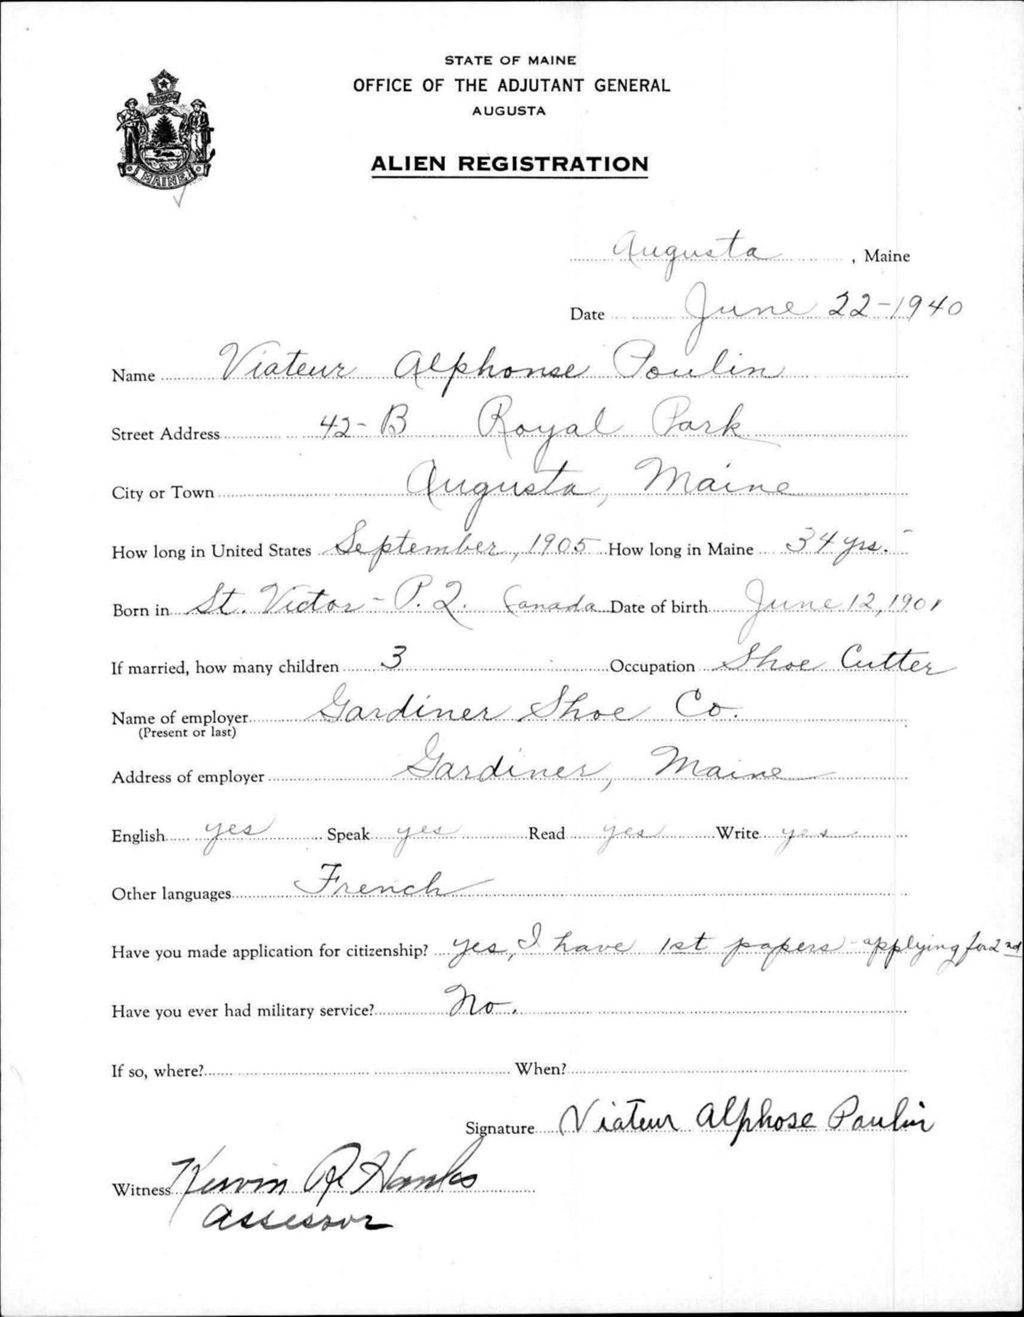 STATE OF MAINE
OFFICE OF THE ADJUTANT GENERAL
AUGUSTA
ALIEN REGISTRATION
MAINE
Augusta, Maine
Date June 22-1940
Name Viateur Alphonse Poulin
Street Address 42-B Royal Park
City or Town Augusta, Maine
How long in United States September, 1905 How long in Maine 34 yrs.
Born in St. Victor - P.Q. Canada Date of birth June 12, 1901
If married, how many children 3 Occupation Shoe Cutter
Name of employer Gardiner Shoe Co.
(Present or last)
Address of employer Gardiner, Maine
English yes Speak yes Read yes Write yes
Other languages French
Have you made application for citizenship? yes, I have 1st papers - applying for 2nd
Have you ever had military service? No.
If so, where? When?
Signature Viateur Alphose Poulin
Witness R Hanks
Assessor